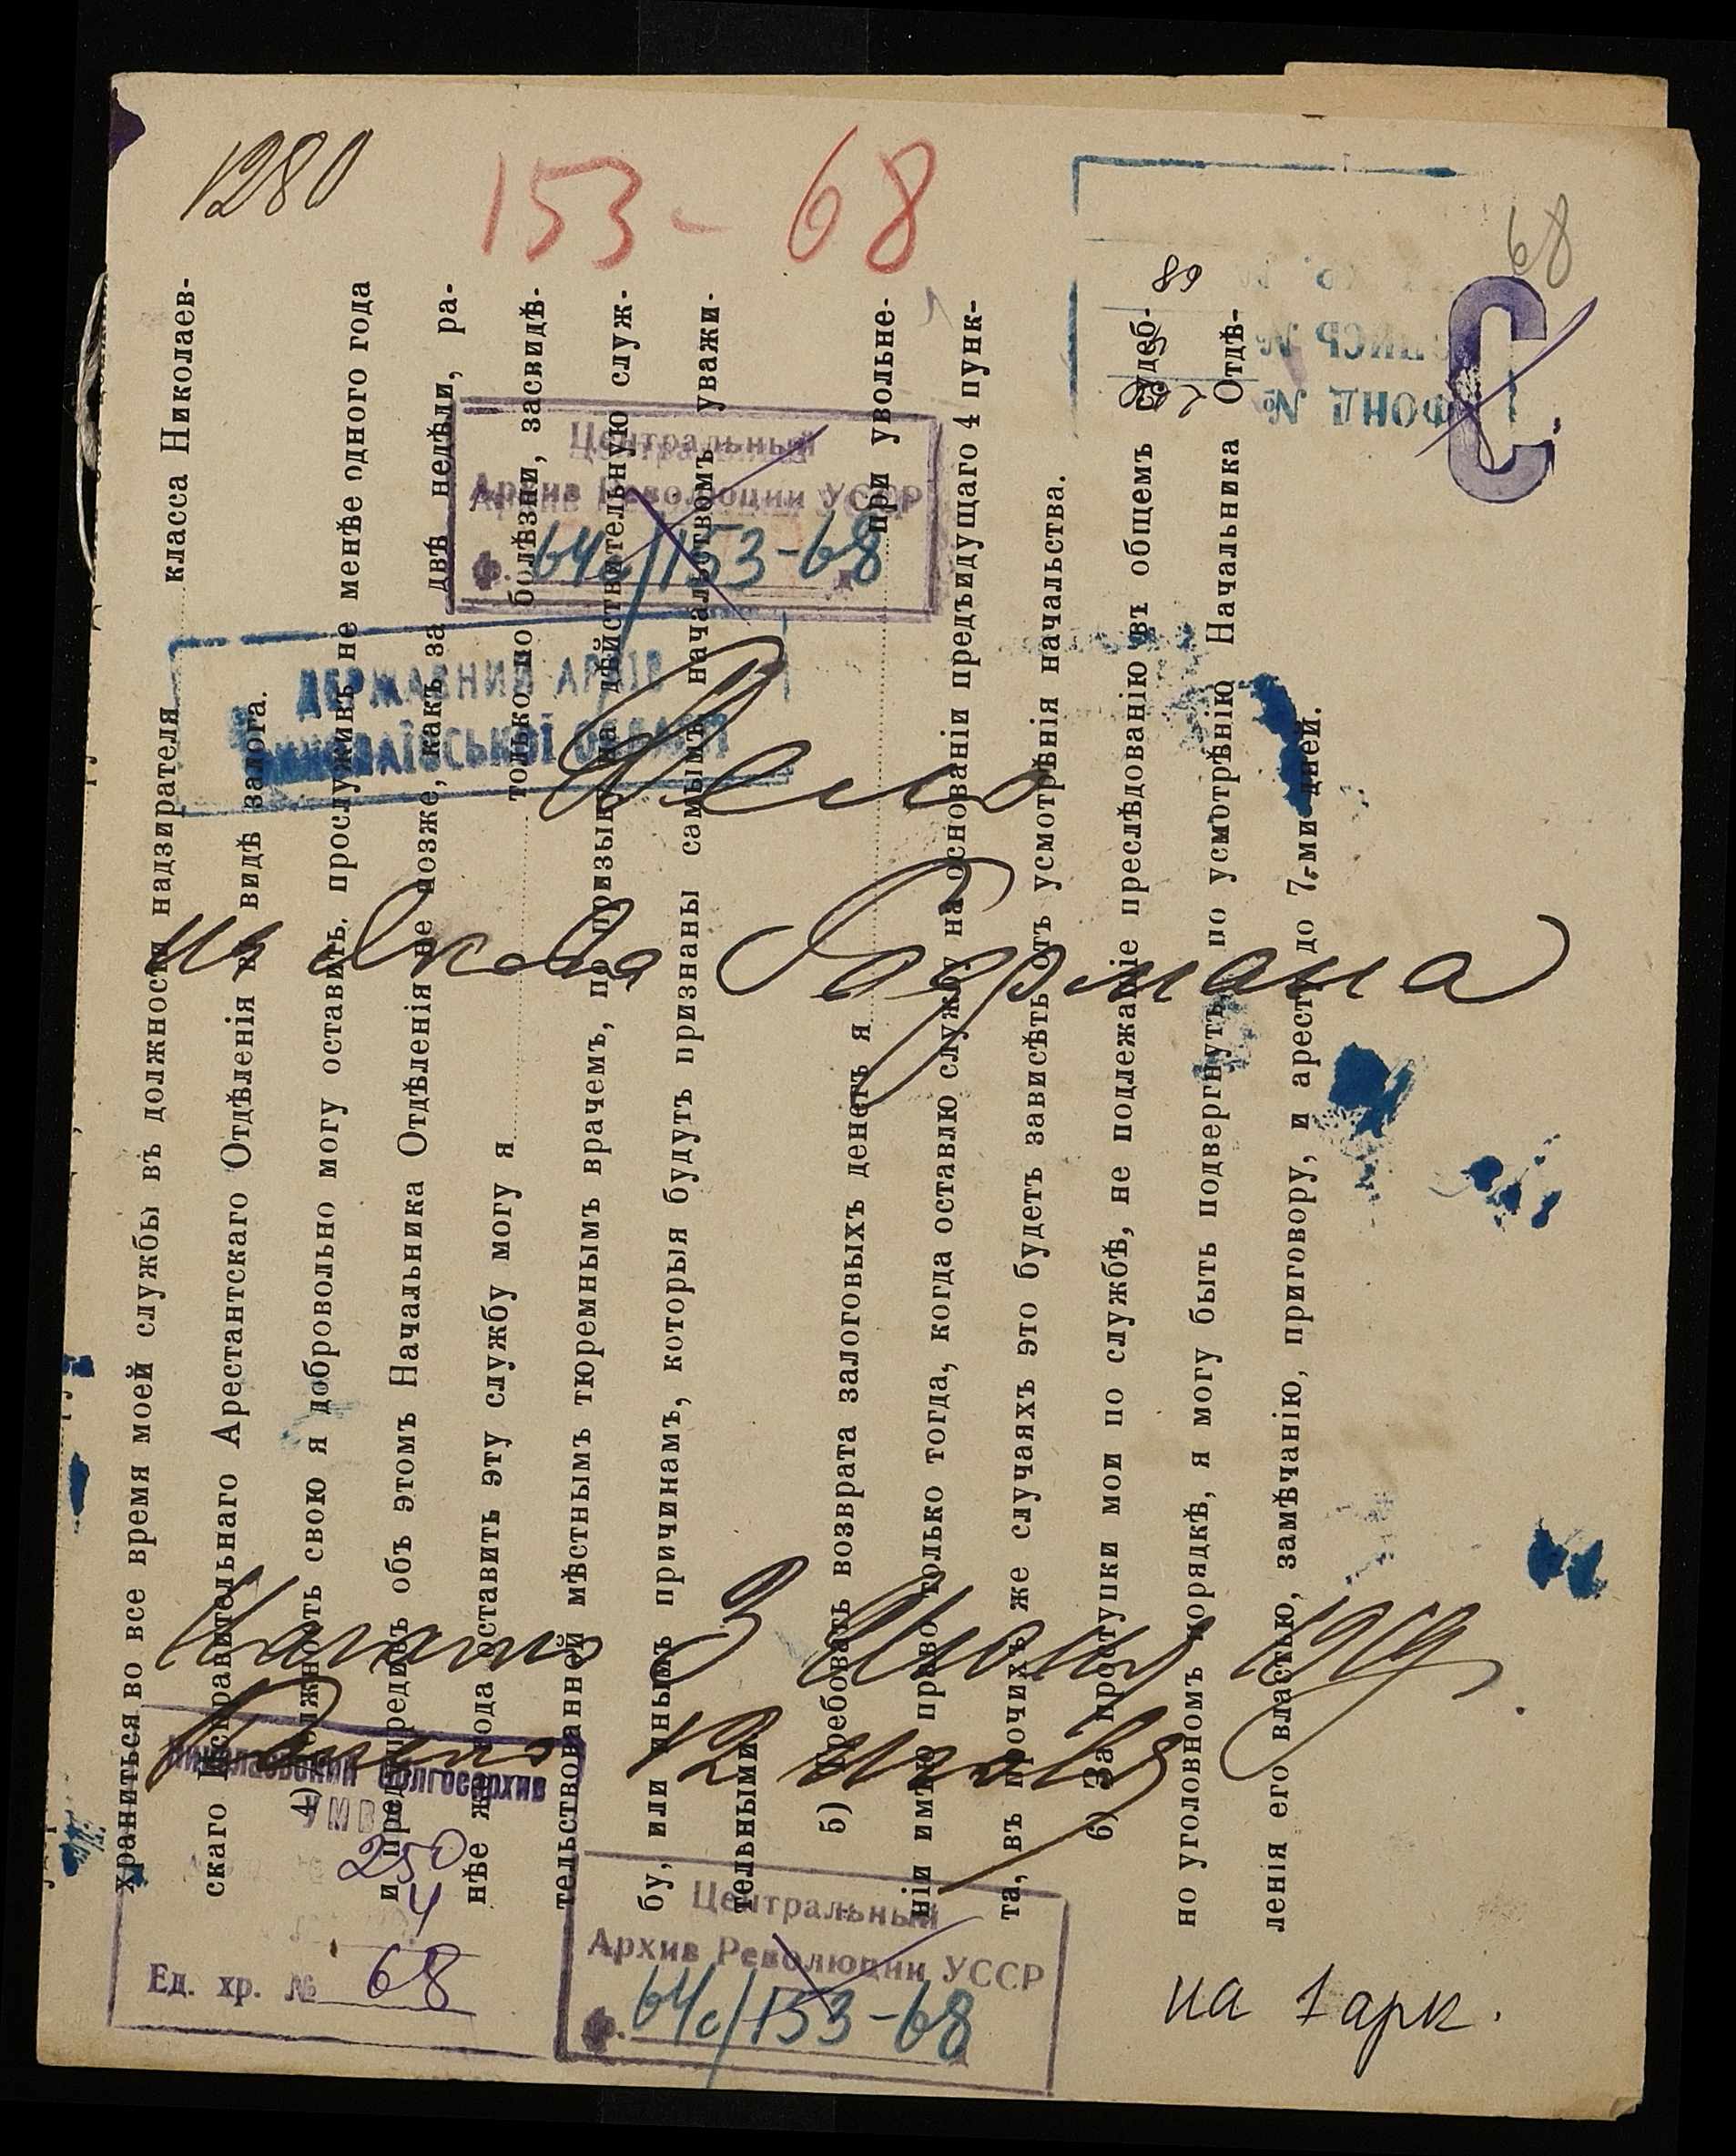 1280
153-68
68
Центральный
Архив Революции УССР
Ф. 64с/153-68
ДЕРЖАВНИЙ АРХІВ
МИКОЛАЇВСЬКОЇ ОБЛАСТІ
ФОНД №
ОПИСЬ №
68
С
Дело
Начато 3 Июня 1919
12 июля
Николаевский облгосархив
УМВД
250
4
Ед. хр. № 68
Центральный
Архив Революции УССР
Ф. 64с/153-68
на 1 арк.
храниться во все время моей службы въ должности надзирателя класса Николаев-
скаго Исправительнаго Арестантскаго Отдѣленія въ видѣ залога.
4) Должность свою я добровольно могу оставить, прослуживъ не менѣе одного года
и предупредивъ объ этомъ Начальника Отдѣленія не позже, какъ за двѣ недѣли, ра-
нѣе же года оставить эту службу могу я только по болѣзни, засвидѣ-
тельствованной мѣстнымъ тюремнымъ врачемъ, по призыву на дѣйствительную служ-
бу, или инымъ причинамъ, которыя будутъ признаны самымъ начальствомъ уважи-
тельными.
5) Требовать возврата залоговыхъ денегъ я при увольне-
ніи имѣю право только тогда, когда оставлю службу на основаніи предъидущаго 4 пунк-
та, въ прочихъ же случаяхъ это будетъ зависѣть отъ усмотрѣнія начальства.
6) За проступки мои по службѣ, не подлежащіе преслѣдованію въ общемъ судеб-
но уголовномъ порядкѣ, я могу быть подвергнутъ по усмотрѣнію Начальника Отдѣ-
ленія его властью, замѣчанію, приговору, и аресту до 7-ми дней.